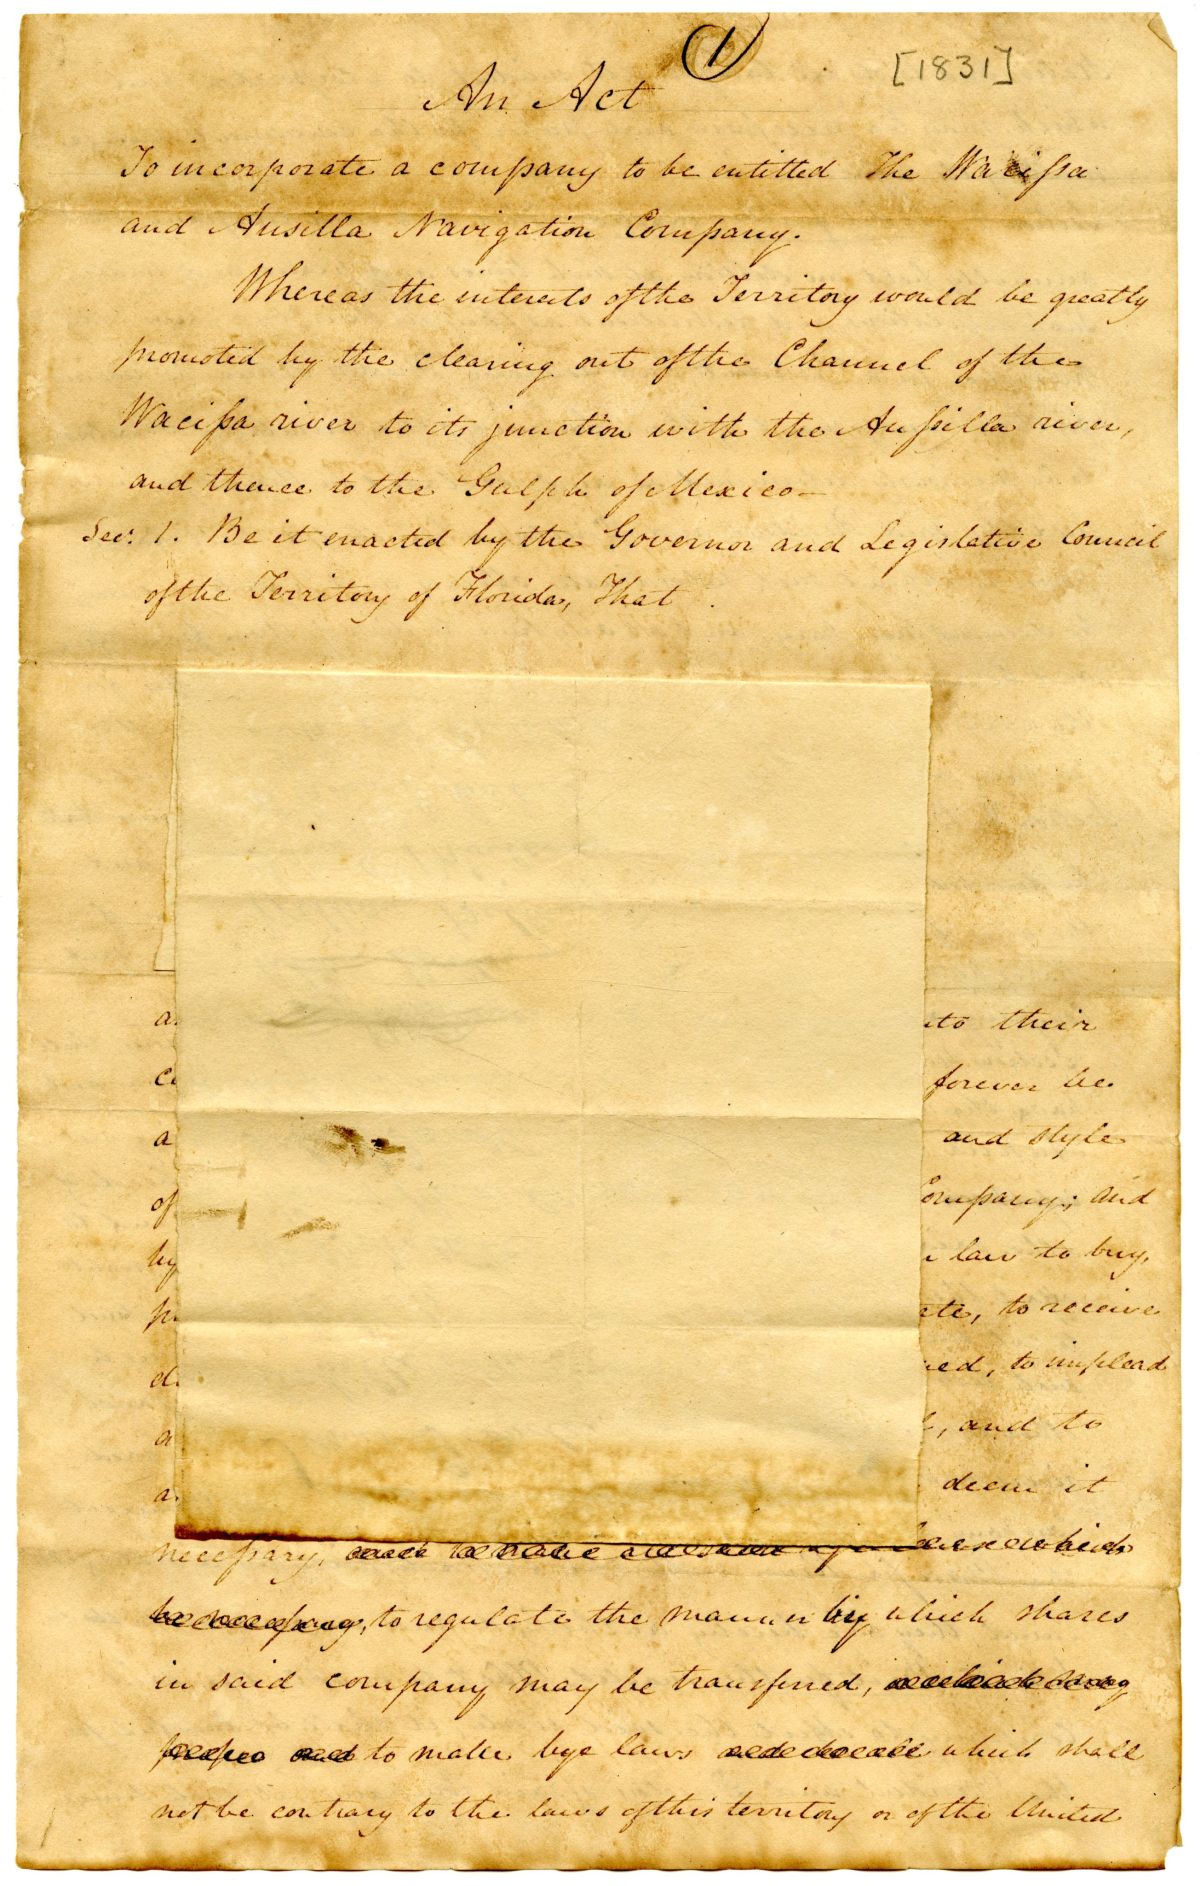 1
[1831]
An Act
To incorporate a company to be entitled The Wacissa
and Ausilla Navigation Company.
Whereas the interests of the Territory would be greatly
promoted by the clearing out of the Channel of the
Wacissa river to its junction with the Aussilla river,
and thence to the Gulph of Mexico—
Sec: 1. Be it enacted by the Governor and Legislative Council
of the Territory of Florida, That
their
forever be
and style
of Company; and
by law to buy,
to receive
to implead
and to
deem it
necessary,
to regulate the manner by which shares
in said company may be transferred,
to make bye laws which shall
not be contrary to the laws of this territory or of the United